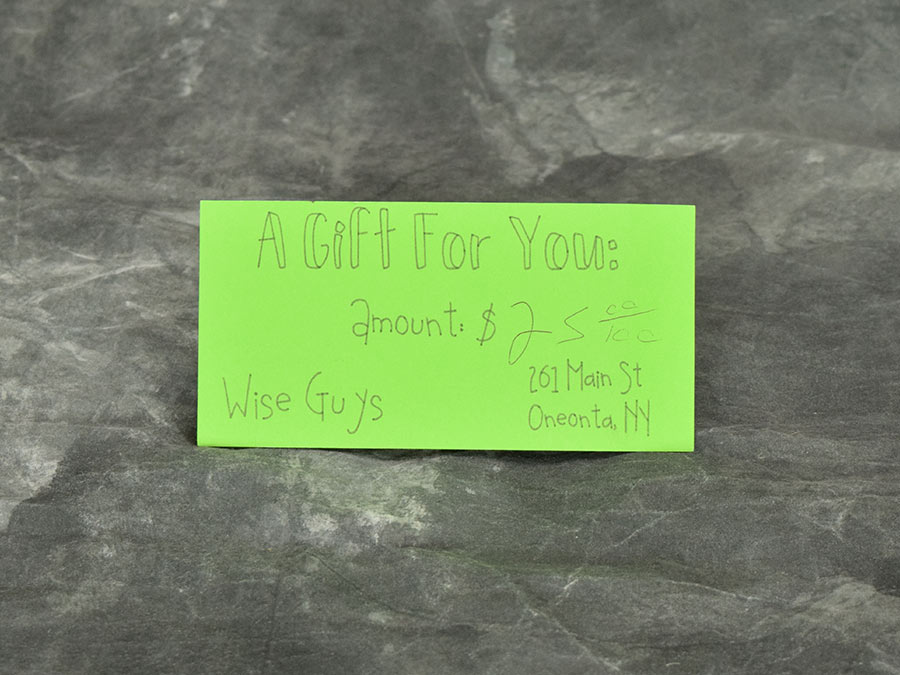 A Gift For You:
amount: $ 25 00/100
Wise Guys
261 Main St
Oneonta, NY